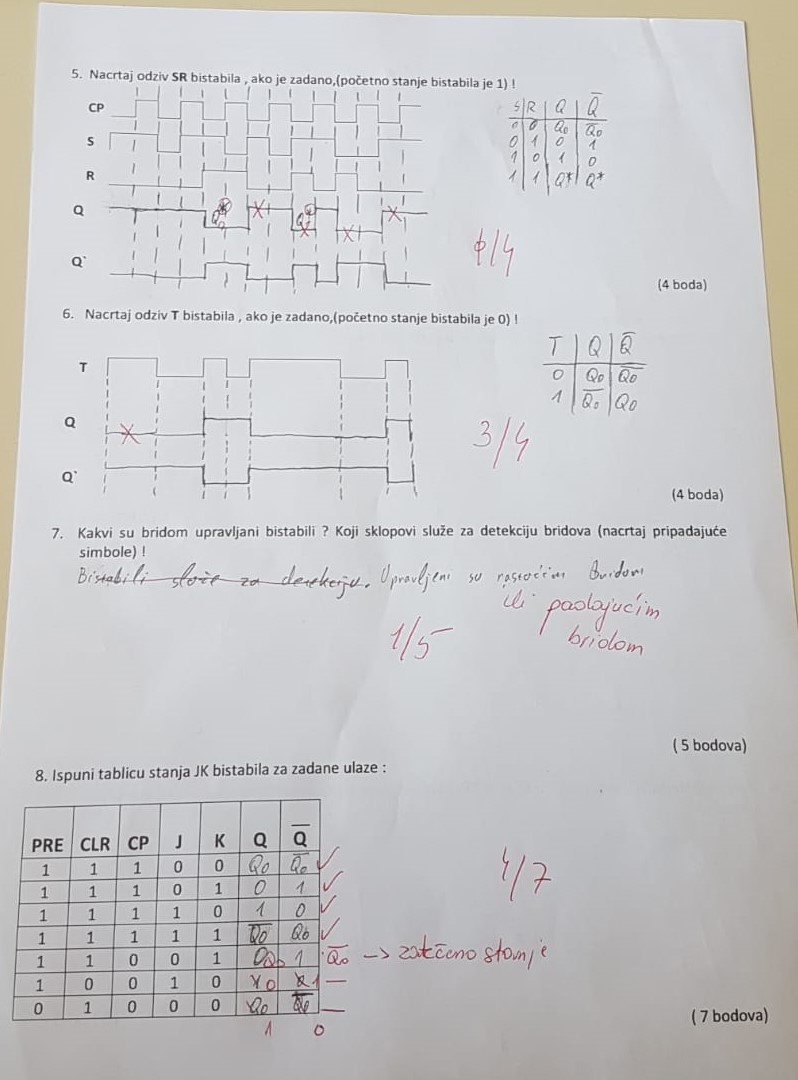 5. Nacrtaj odziv SR bistabila , ako je zadano,(početno stanje bistabila je 1) !
CP
S
R
Q
Q`
S R Q Q̅
0 0 Q0 Q̅0
0 1 0 1
1 0 1 0
1 1 Q* Q*
0/4
(4 boda)
6. Nacrtaj odziv T bistabila , ako je zadano,(početno stanje bistabila je 0) !
T
Q
Q`
T Q Q̅
0 Q0 Q̅0
1 Q̅0 Q0
3/4
(4 boda)
7. Kakvi su bridom upravljani bistabili ? Koji sklopovi služe za detekciju bridova (nacrtaj pripadajuće
simbole) !
Bistabili služe za detekciju. Upravljeni su rastućim bridom
ili padajućim
bridom
1/5
( 5 bodova)
8. Ispuni tablicu stanja JK bistabila za zadane ulaze :
PRE CLR CP J K Q Q̅
1 1 1 0 0 Q0 Q̅0
1 1 1 0 1 0 1
1 1 1 1 0 1 0
1 1 1 1 1 Q̅0 Q0
1 1 0 0 1 0 Q0 1 Q̅0 -> zatečeno stanje
1 0 0 1 0 x 0 x 1
0 1 0 0 0 Q0 Q̅0
1 0
4/7
( 7 bodova)